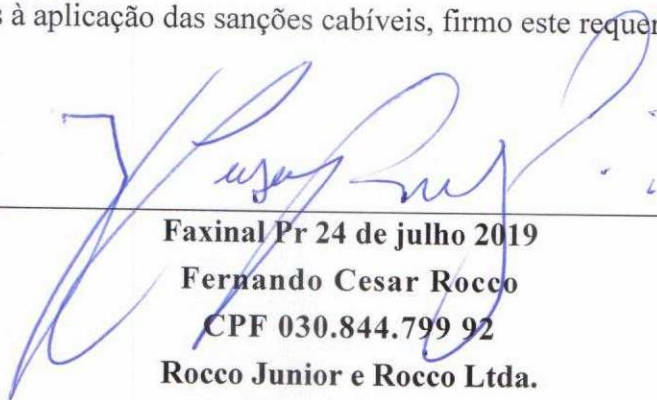 s à aplicação das sanções cabíveis, firmo este requer
Faxinal Pr 24 de julho 2019
Fernando Cesar Rocco
CPF 030.844.799 92
Rocco Junior e Rocco Ltda.